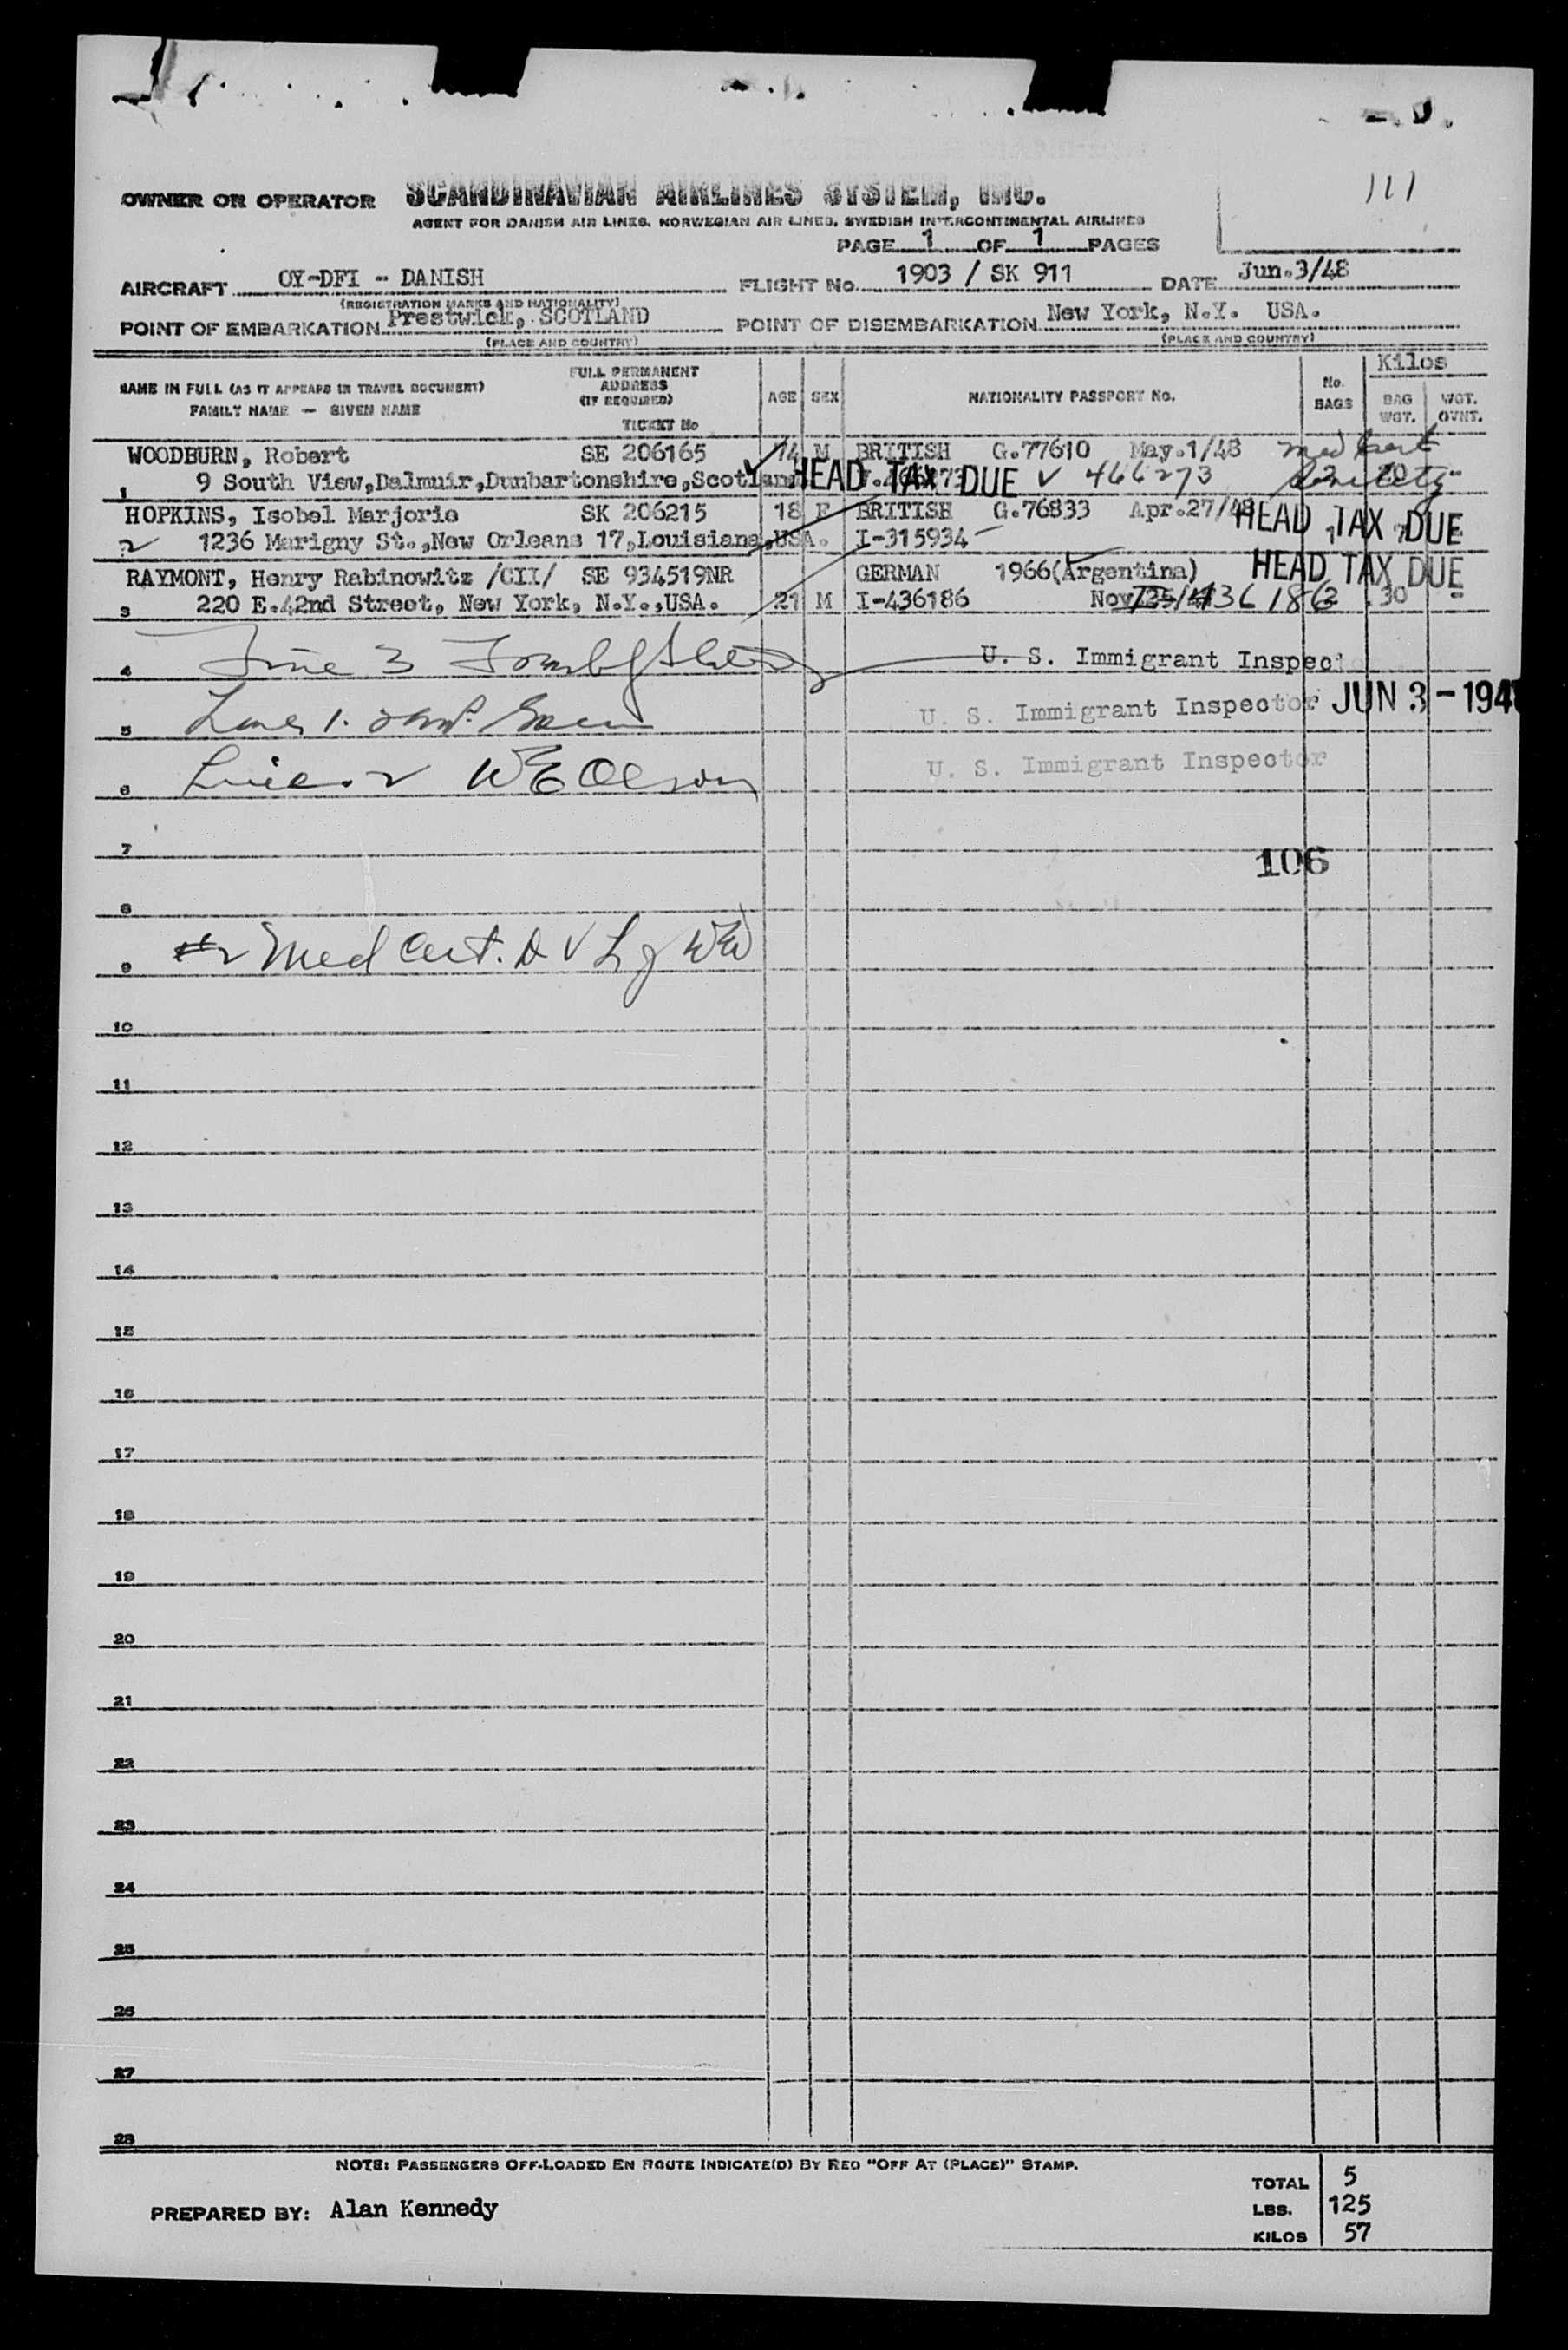 111
OWNER OR OPERATOR SCANDINAVIAN AIRLINES SYSTEM, INC.
AGENT FOR DANISH AIR LINES, NORWEGIAN AIR LINES, SWEDISH INTERCONTINENTAL AIRLINES
PAGE 1 OF 1 PAGES
AIRCRAFT OY-DFI - DANISH FLIGHT No. 1903 / SK 911 DATE Jun.3/48
(REGISTRATION MARKS AND NATIONALITY)
POINT OF EMBARKATION Prestwick, SCOTLAND POINT OF DISEMBARKATION New York, N.Y. USA.
(PLACE AND COUNTRY) (PLACE AND COUNTRY)
Kilos
NAME IN FULL (AS IT APPEARS IN TRAVEL DOCUMENT) FULL PERMANENT ADDRESS (IF REQUIRED) AGE SEX NATIONALITY PASSPORT No. No. BAGS BAG WGT. WGT. OVNT.
FAMILY NAME — GIVEN NAME TICKET No
WOODBURN, Robert SE 206165 74 M BRITISH G.77610 May.1/48 med cert
1 9 South View,Dalmuir,Dunbartonshire,Scotland HEAD TAX DUE ✓ 466273 2 20 - Senility
HOPKINS, Isobel Marjorie SK 206215 18 F BRITISH G.76833 Apr.27/48 HEAD TAX DUE
2 1236 Marigny St.,New Orleans 17,Louisiana,USA. I-315934
RAYMONT, Henry Rabinowitz /CII/ SE 934519NR GERMAN 1966(Argentina) HEAD TAX DUE
3 220 E.42nd Street, New York, N.Y.,USA. 21 M I-436186 Nov 436186 2 30 -
4 Line 3 U. S. Immigrant Inspec
5 Line 1. U. S. Immigrant Inspector JUN 3 - 194
6 Line 2 WE Olson U. S. Immigrant Inspector
7 106
8
9 #2 Med Cert. WW
10
11
12
13
14
15
16
17
18
19
20
21
22
23
24
25
26
27
28
NOTE: PASSENGERS OFF-LOADED EN ROUTE INDICATE(D) BY RED "OFF AT (PLACE)" STAMP.
TOTAL 5
PREPARED BY: Alan Kennedy LBS. 125
KILOS 57